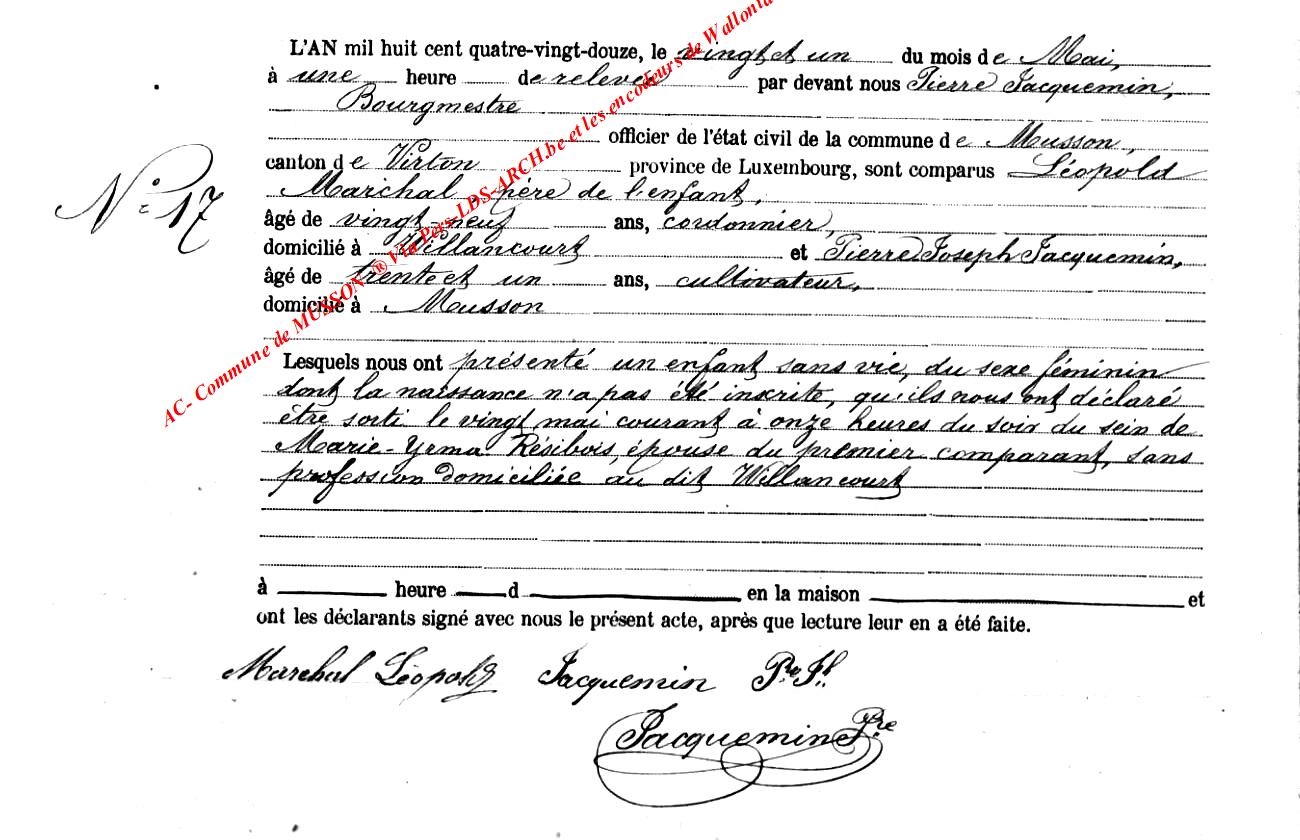 L'AN mil huit cent quatre-vingt-douze, le vingt et un du mois de Mai,
à une heure de relevée par devant nous Pierre Jacquemin,
Bourgmestre
officier de l'état civil de la commune de Musson,
canton de Virton province de Luxembourg, sont comparus Léopold
Marchal, père de l'enfant,
N° 17
âgé de vingt-neuf ans, cordonnier,
domicilié à Willancourt et Pierre Joseph Jacquemin,
âgé de trente et un ans, cultivateur,
domicilié à Musson
AC- Commune de MUSSON ® Via Pers-LDS-ARCH.be et les encodeurs de Wallonie
Lesquels nous ont présenté un enfant sans vie, du sexe féminin
dont la naissance n'a pas été inscrite, qu'ils nous ont déclaré
être sorti le vingt mai courant à onze heures du soir du sein de
Marie-Yrma Résibois, épouse du premier comparant, sans
profession domiciliée au dit Willancourt
à heure d en la maison et
ont les déclarants signé avec nous le présent acte, après que lecture leur en a été faite.
Marchal Léopold Jacquemin Pre Jh
Jacquemin Pre